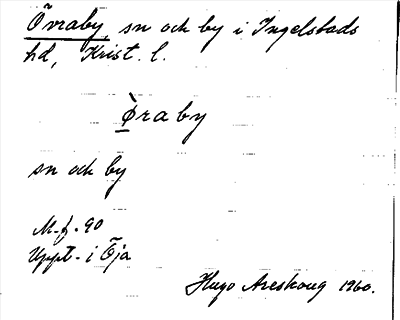 Övraby, sn och by i Ingelstads
hd, Krist. l.
Ø̀raby
sn och by
M-f. 90
Uppt. i Öja
Hugo Areskoug 1960.